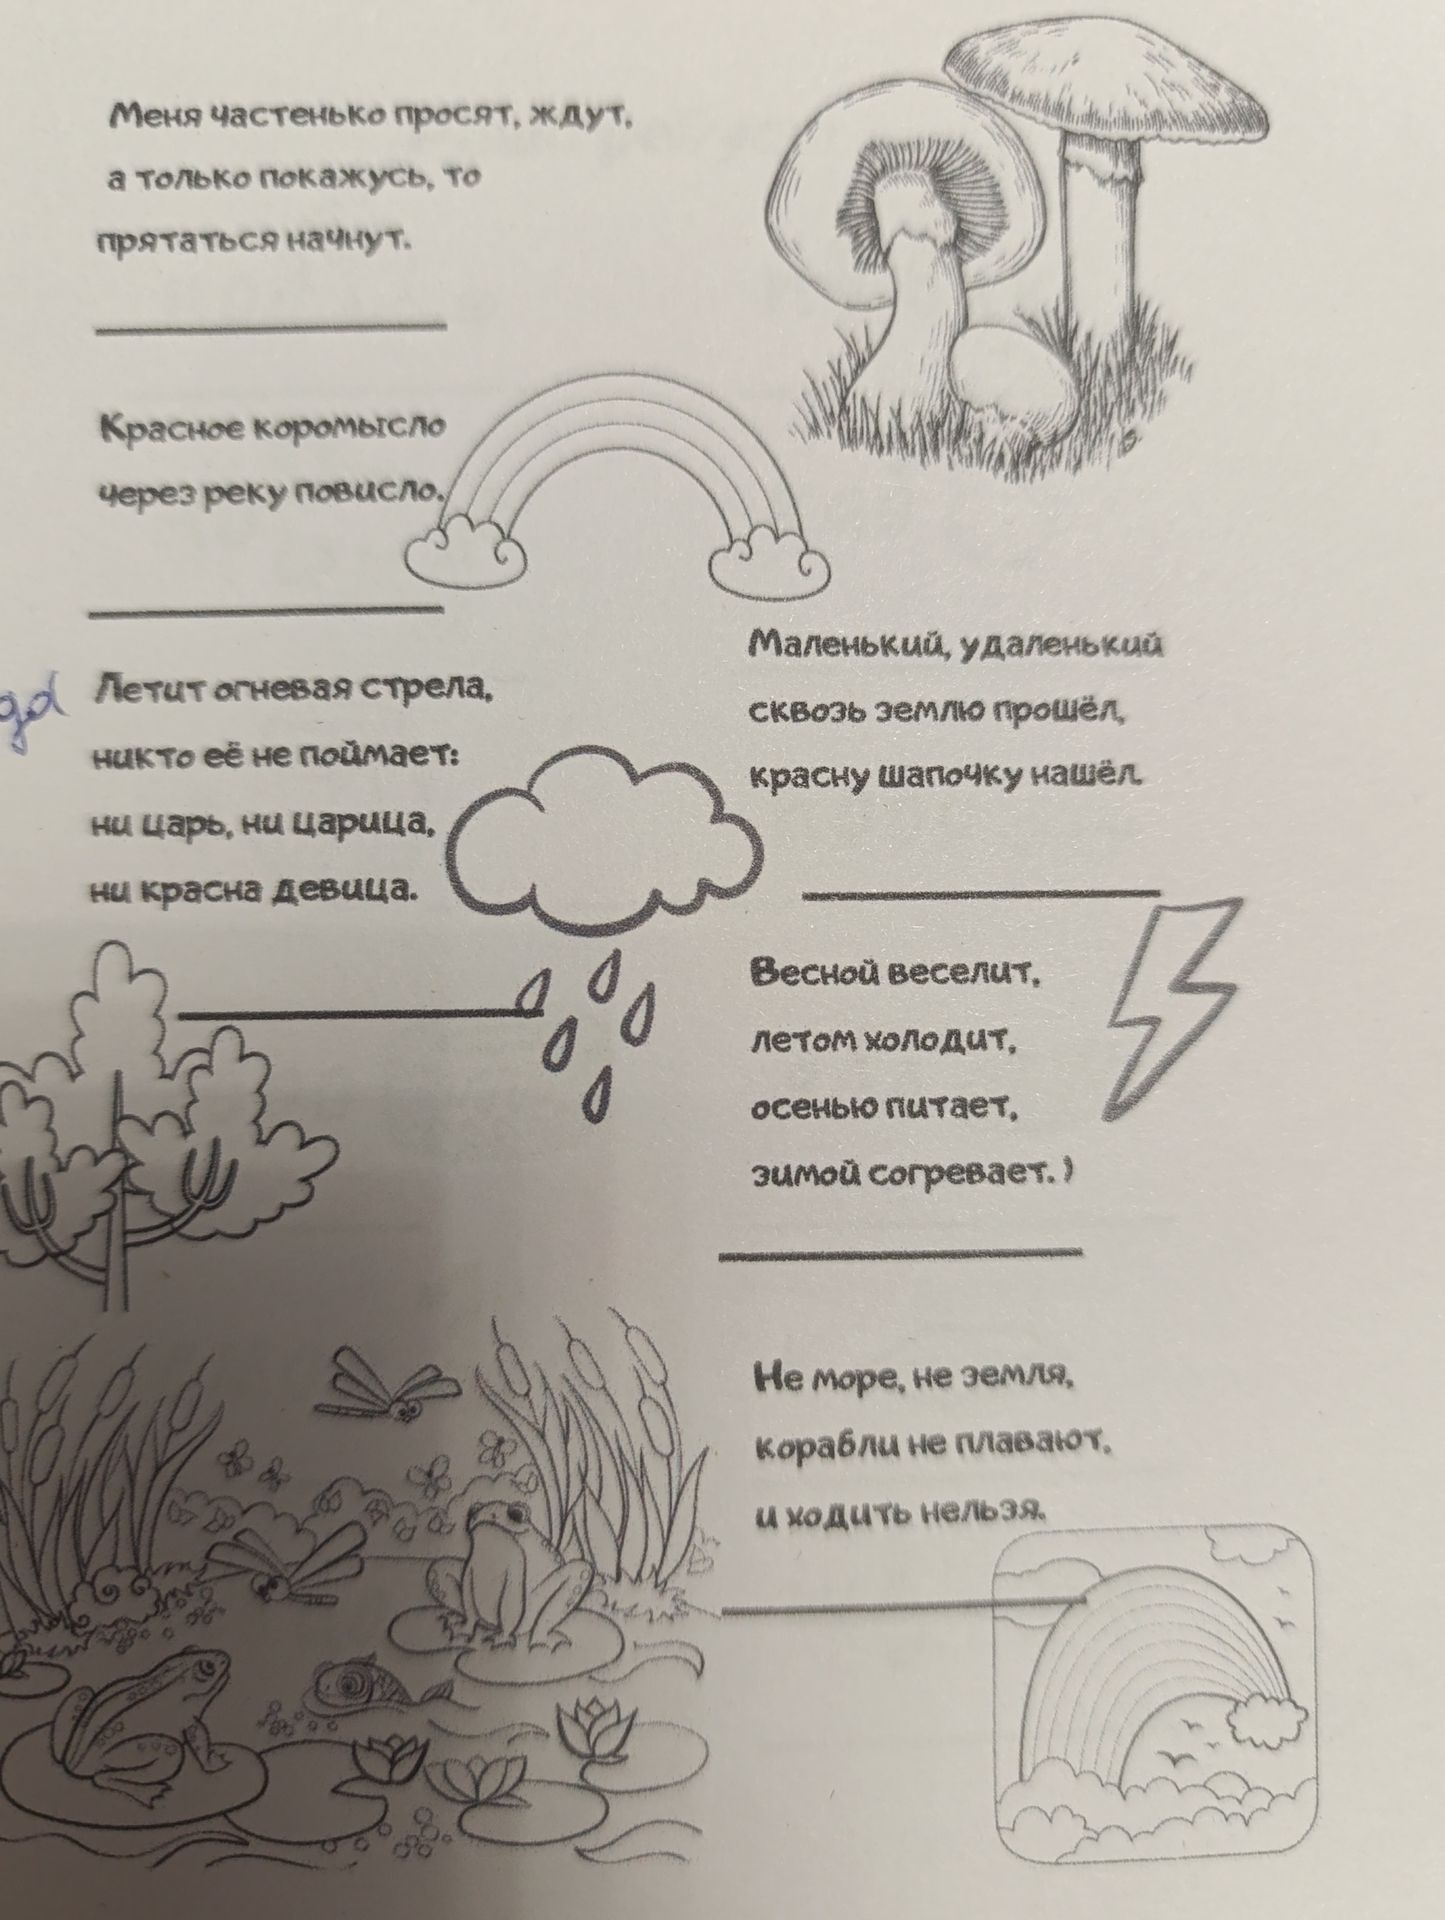 Меня частенько просят, ждут,
а только покажусь, то
прятаться начнут.
Красное коромысло
через реку повисло.
Летит огневая стрела,
никто её не поймает:
ни царь, ни царица,
ни красна девица.
Маленький, удаленький
сквозь землю прошёл,
красну шапочку нашёл.
Весной веселит,
летом холодит,
осенью питает,
зимой согревает. )
Не море, не земля,
корабли не плавают,
и ходить нельзя.